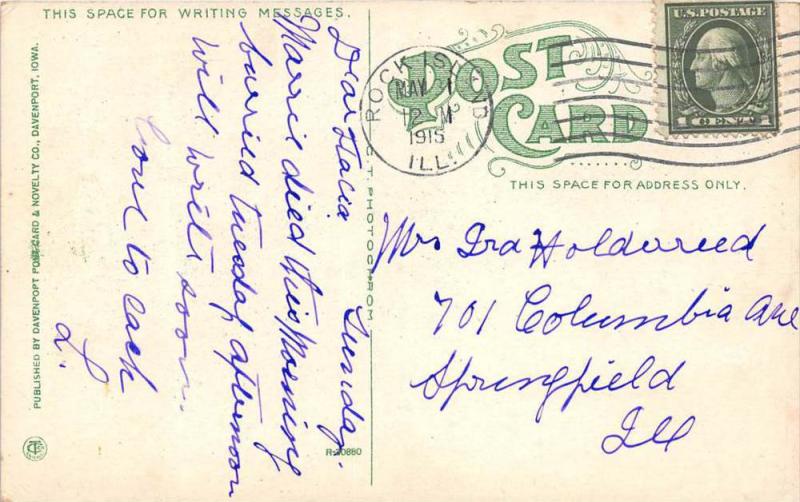 THIS SPACE FOR WRITING MESSAGES.
POST CARD
THIS SPACE FOR ADDRESS ONLY.
U.S. POSTAGE
1 CENT 1
ROCK ISLAND
MAY
12 M
1915
ILL.
Sunday.
Dear Stacia
Marrie died this morning
burried tuesday afternoon
will write soon.
Love to each
L.
Mrs Ira Holdareed
701 Columbia Ave
Springfield
Ill
PUBLISHED BY DAVENPORT POSTCARD & NOVELTY CO., DAVENPORT, IOWA.
C.T. PHOTOCHROM
R-30880